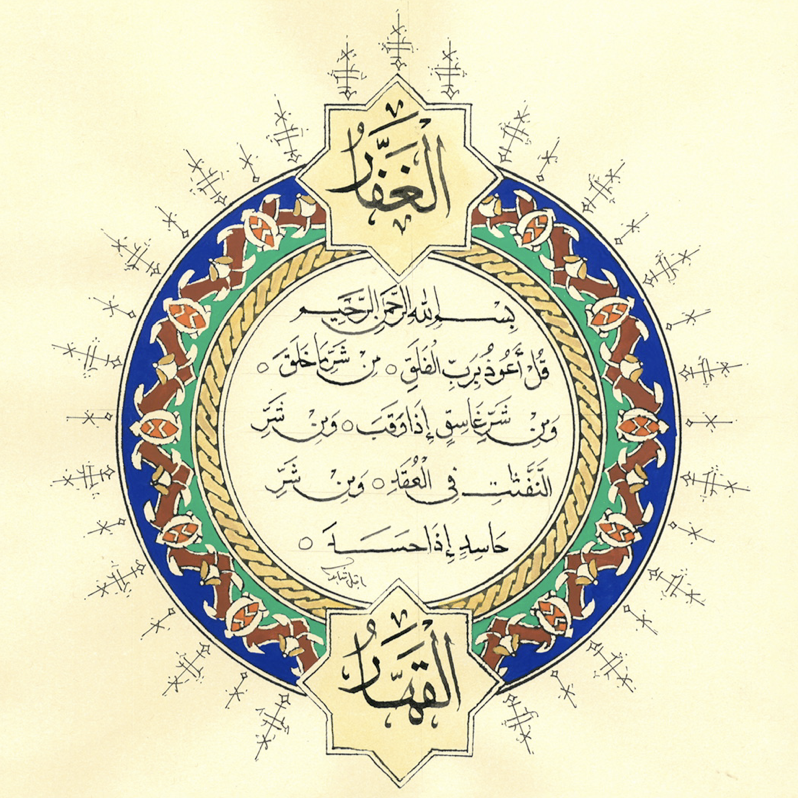 الْغَفَّارُ
بِسْمِ اللهِ الرَّحْمَنِ الرَّحِيمِ
قُلْ أَعُوذُ بِرَبِّ الْفَلَقِ ○ مِنْ شَرِّ مَا خَلَقَ ○
وَمِنْ شَرِّ غَاسِقٍ إِذَا وَقَبَ ○ وَمِنْ شَرِّ
النَّفَّثَٰتِ فِي الْعُقَدِ ○ وَمِنْ شَرِّ
حَاسِدٍ إِذَا حَسَدَ ○
الْقَهَّارُ